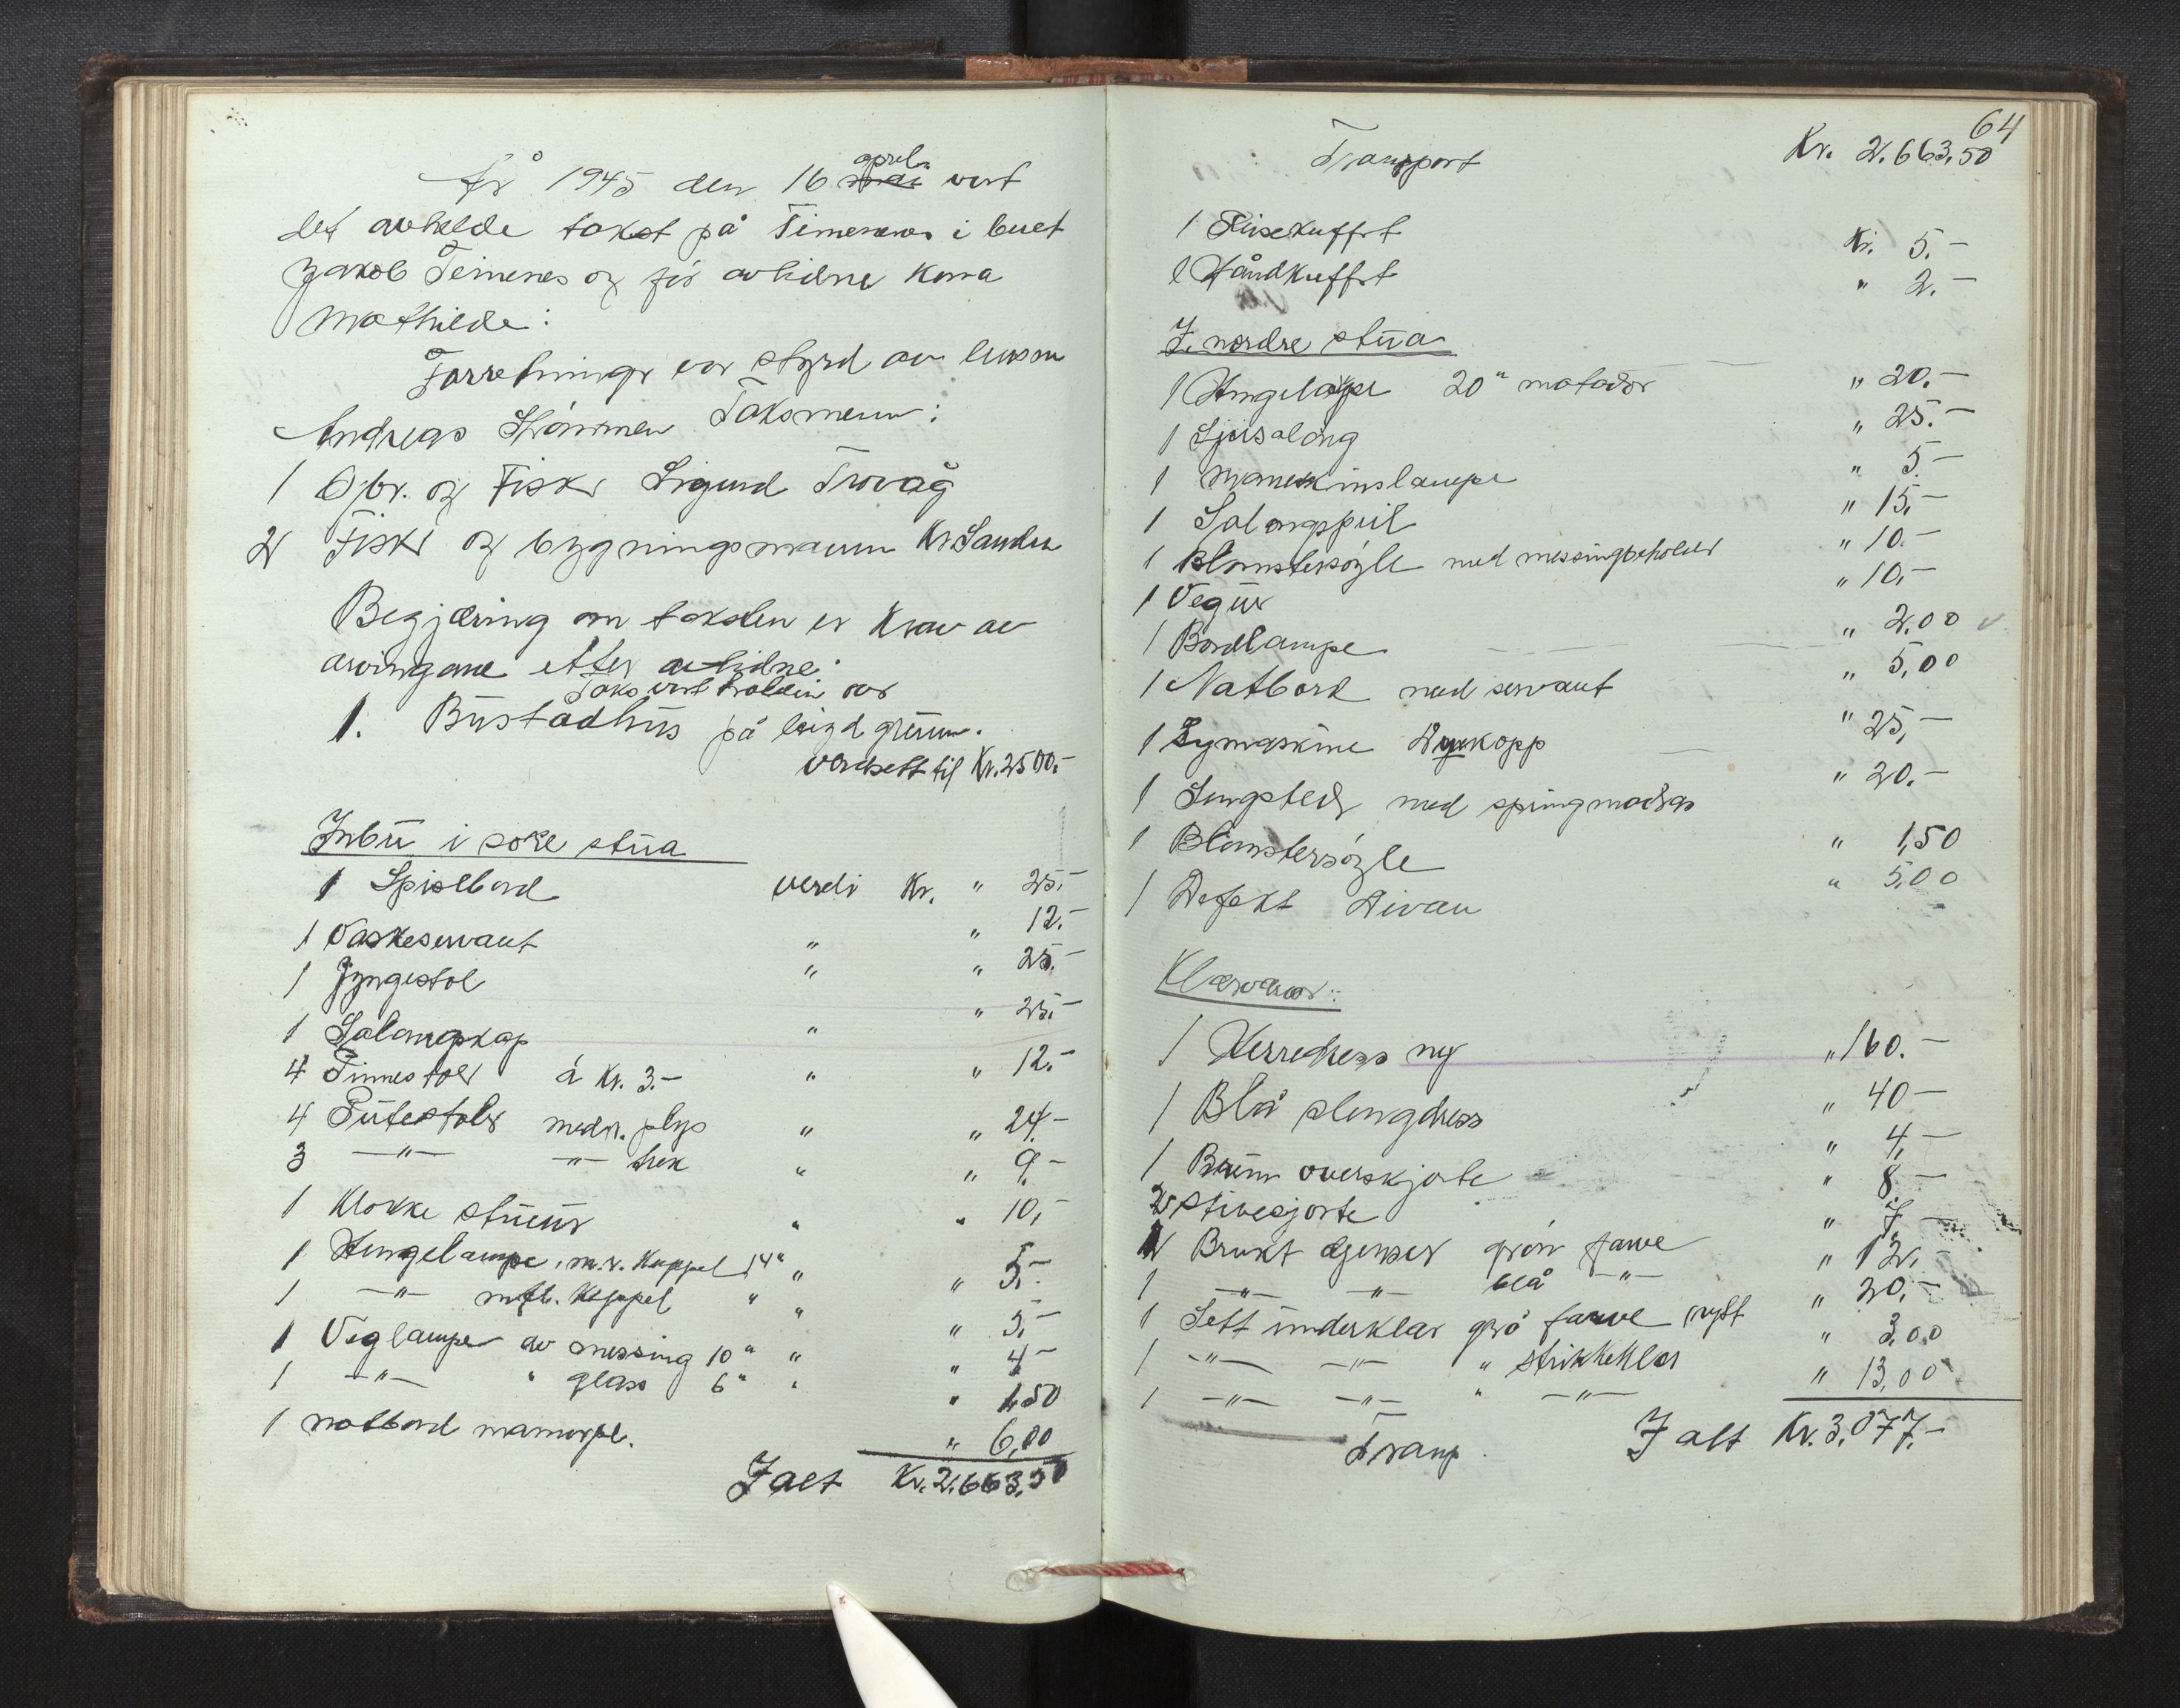 År 1945 den 16 april vert
det avhelde takst på Teimenes i buet
Jakob Teimenes og for avlidne kona
Mathilde:
Forretninga var styrd av lensm
Andreas Strømmen Taksmenn:
1 Gbr. og Fisker Sigurd Trovåg
2 Fisker og bygningsmann Kr Sanden
Begjæring om taksten er krav av
arvingane etter avlidne:
Takst vert halden over
1. Bustadhus på leigd grunn.
verdsett til Kr. 2500.-
Inbu i søre stua
1 Spisebord verdi Kr. " 25.-
1 Vaskeservant " " 12.-
1 Gyngestol " " 25.-
1 Salongskap " " 25.-
4 Pinnestoler á Kr. 3.- " " 12.-
4 Putestoler med r. plys " " 24.-
3 -"- -"- trek " " 9.-
1 Klokke stueur " " 10,-
1 Hengelampe, m. r. Kuppel 14" " " 5.-
1 -"- m/bl. Kuppel " " " 5.-
1 Veglampe av messing 10" " " 4.-
1 -"- " glass 6" " " 1,50
1 natbord marmorpl. " 6,00
I alt Kr. 2.663,50
64
Transport Kr. 2.663,50
1 Reisekuffert Kr. 5.-
1 Håndkuffert " 2.-
I. nordre stua
1 Hengelampe 20" matador " 20.-
1 Sjeselong " 25.-
1 Maneskinslampe " 5.-
1 Salongspeil " 15,-
1 Blomstersøyle med messingbeholder " 10.-
1 Vegur " 10,-
1 Bordlampe " 2,00
1 Natbord med servant " 5,00
1 Symaskine Dyrkopp " 25,-
1 Sengsted med springmadras " 20.-
1 Blomstersøyle " 1,50
1 Defekt Divan " 5,00
Klærvarer:
1 Herredress ny " 160.-
1 Blå slengdress " 40-
1 Brun overskjorte " 4,-
2 Stivesjorte " 8-
1 Brukt djenser grøn farve " 7,-
1 -"- -"- blå -"- " 12,-
1 Sett underklær grå farve nytt " 20,-
1 -"- -"- " strikkeklær " 3,00
1 -"- -"- " -"- " 13,00
Transp. I alt Kr. 3.077,-